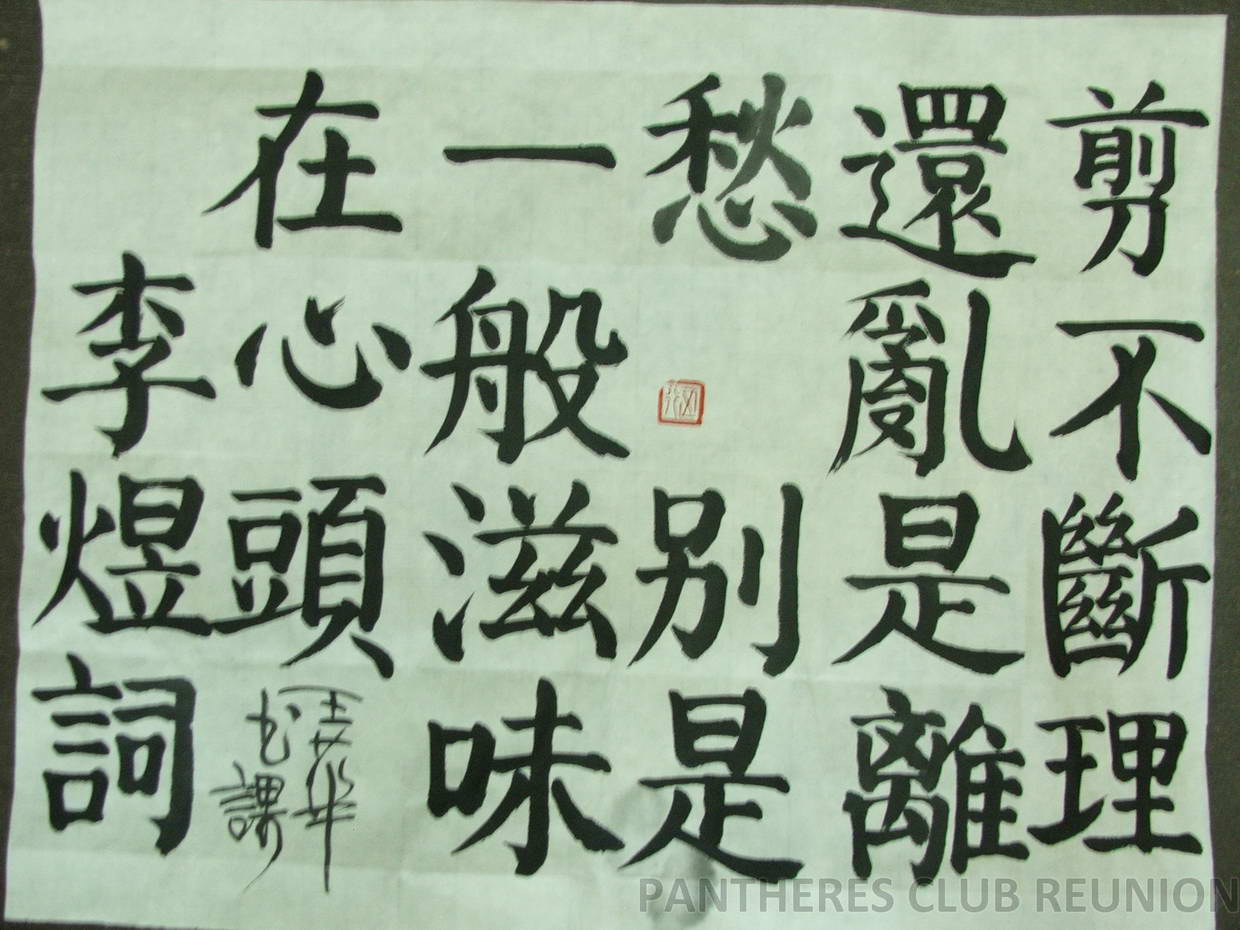 剪不斷理
還亂是離
愁
别是
一般滋味
在心頭
书課
李煜詞
PANTHERES CLUB REUNION